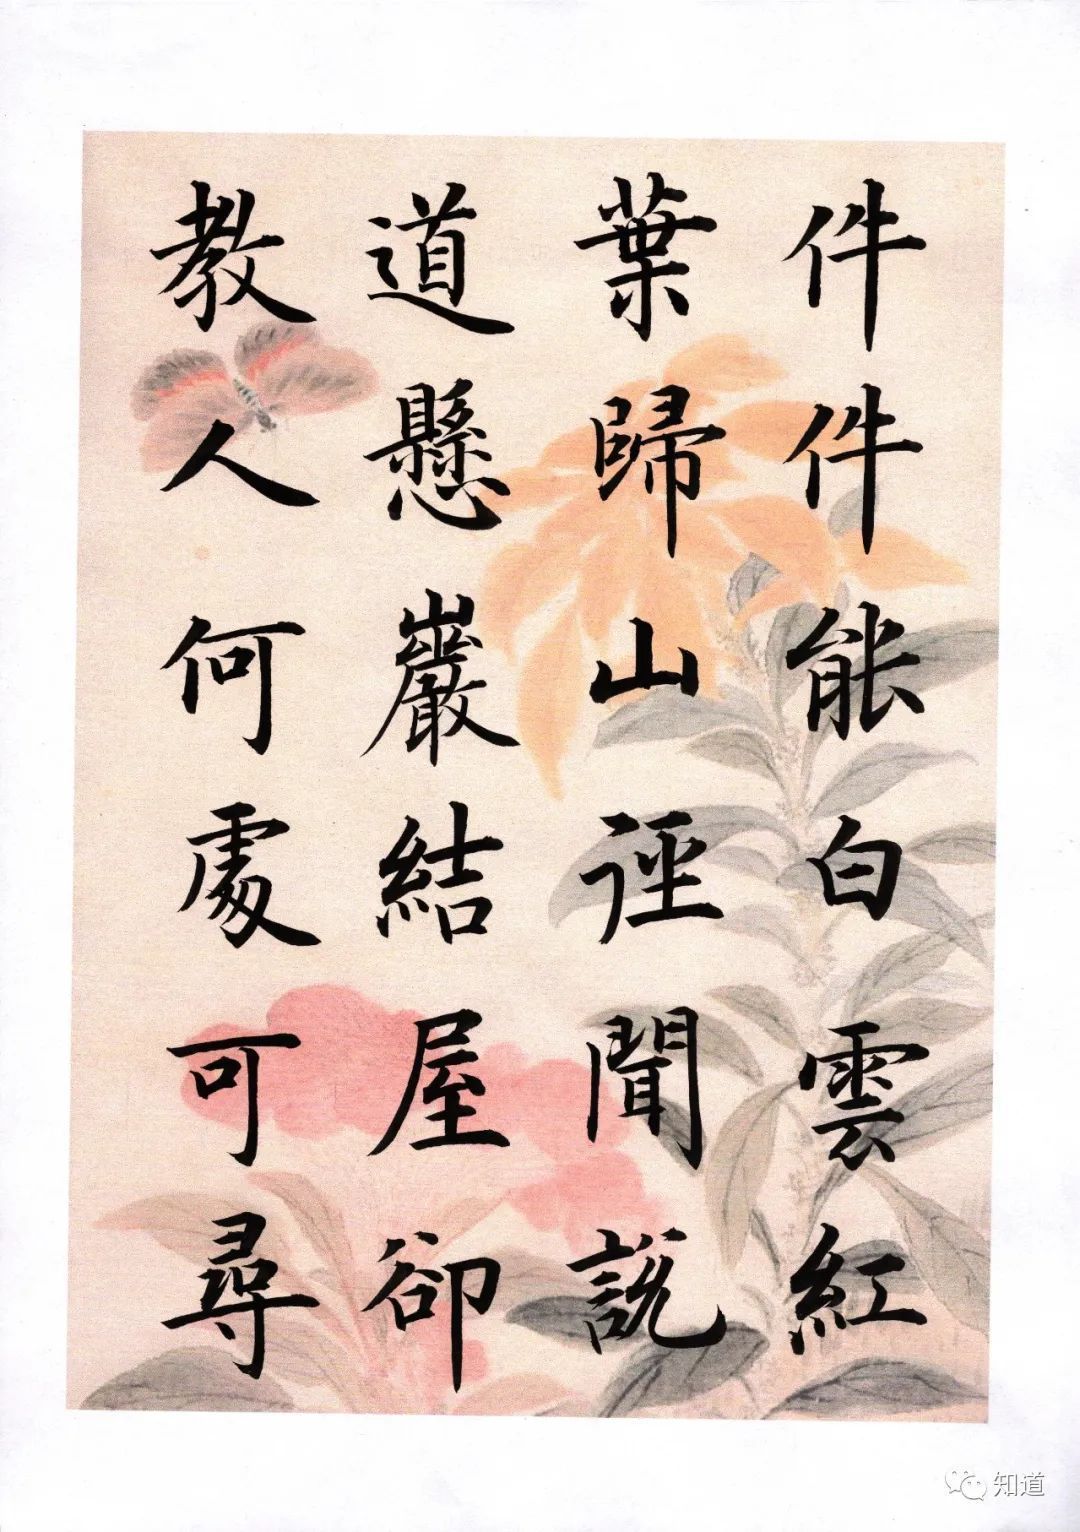 件件能白雲紅
葉歸山徑聞說
道懸巖結屋卻
教人何處可尋
知道